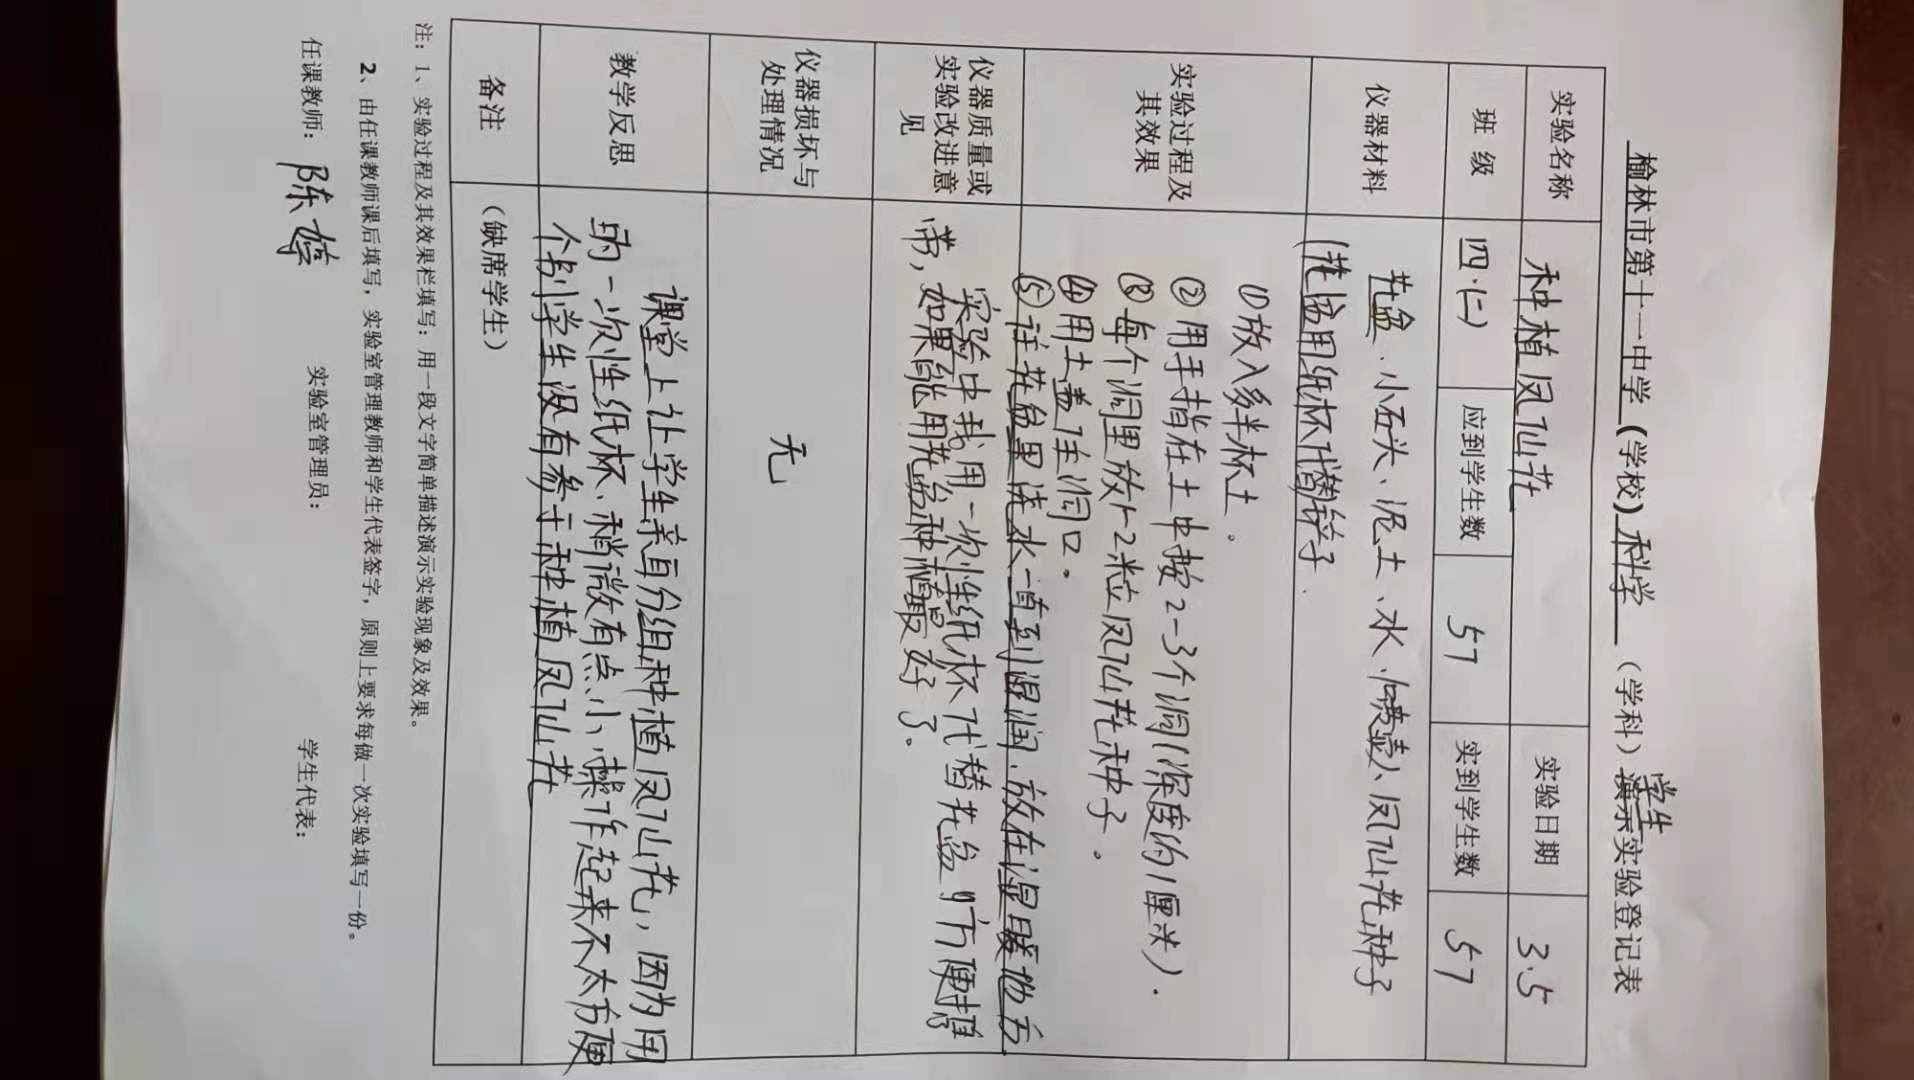 榆林市第十一中学(学校)科学(学科)演示实验登记表
学生
实验名称 种植凤仙花 实验日期 3.5
班 级 四·(二) 应到学生数 57 实到学生数 57
仪器材料
花盆、小石头、泥土、水、喷壶、凤仙花种子
(花盆用纸杯代替)锌子.
实验过程及
其效果
①放入多半杯土。
②用手指在土中按2-3个洞(深度约1厘米).
③每个洞里放1-2粒凤仙花种子。
④用土盖住洞口。
⑤往花盆里浇水一直到湿润.放在温暖地方
仪器质量或
实验改进意
见
实验中我用一次性纸杯代替花盆,方便携
带,如果能用花盆种植最好了。
仪器损坏与
处理情况
无
教学反思
课堂上让学生亲自分组种植凤仙花,因为用
的一次性纸杯、稍微有点小,操作起来不太方便
个别学生没有参于种植凤仙花
备注
(缺席学生)
注:1、实验过程及其效果栏填写:用一段文字简单描述演示实验现象及效果。
2、由任课教师课后填写,实验室管理教师和学生代表签字,原则上要求每做一次实验填写一份。
任课教师: 陈婷 实验室管理员: 学生代表: